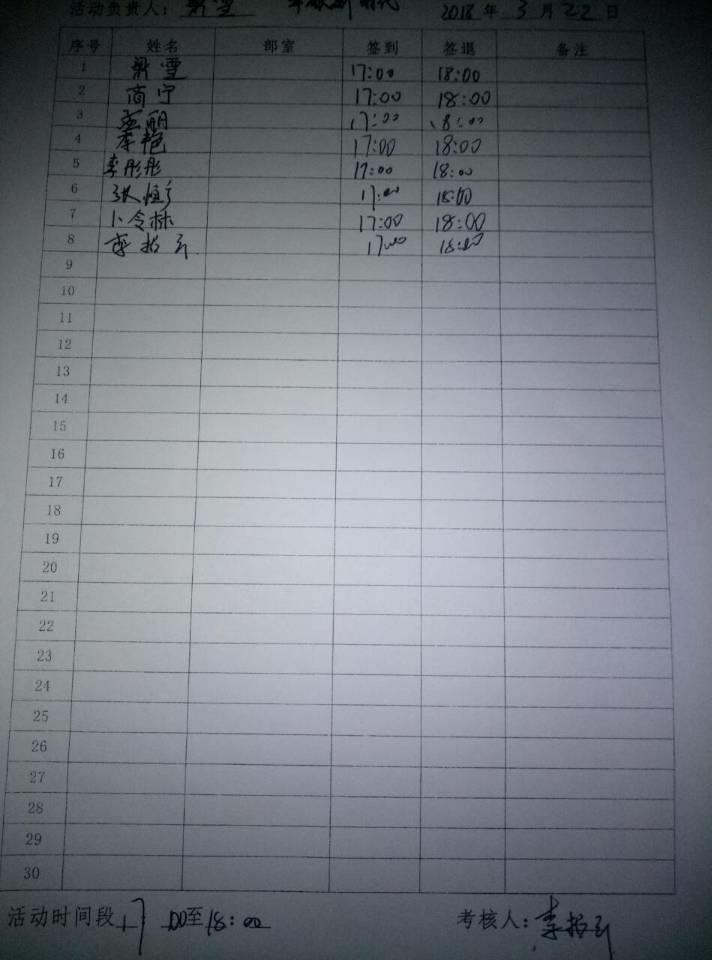 活动负责人: 梁雪 2018 年 3 月 22 日
序号 姓名 部室 签到 签退 备注
1 梁雪 17:00 18:00
2 商宁 17:00 18:00
3 孟丽 17:00 18:00
4 李艳 17:00 18:00
5 李彤彤 17:00 18:00
6 17:00 18:00
7 卜令林 17:00 18:00
8 17:00 18:00
9
10
11
12
13
14
15
16
17
18
19
20
21
22
23
24
25
26
27
28
29
30
活动时间段 17:00至18:00 考核人: